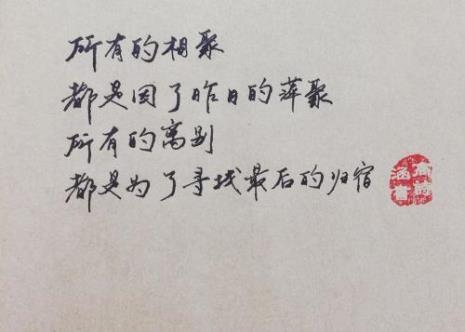 所有的相聚
都是因了昨日的萍聚
所有的离别
都是为了寻找最后的归宿